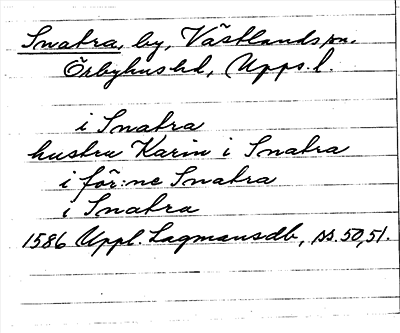 Snatra, by, Västlands sn.
Örbyhus hd, Upps. l.
i Snatra
hustru Karin i Snatra
i för:ne Snatra
i Snatra
1586 Uppl. Lagmansdb, ss. 50, 51.